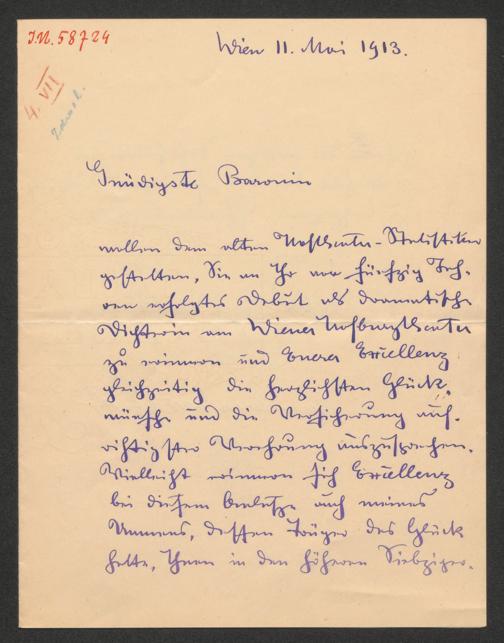 J.N. 58724
Wien 11. Mai 1913.
4. VII
Gnädigste Baronin
wollen dem alten Hoftheater-Statistiker
gestatten, Sie an Ihr vor fünfzig Jah-
ren erfolgtes Debut als dramatische
Dichterin am Wiener Hofburgtheater
zu erinnern und Euerer Excellenz
gleichzeitig die herzlichsten Glück-
wünsche und die Versicherung auf-
richtigster Verehrung auszusprechen.
Vielleicht erinnern sich Excellenz
bei diesem Anlasse auch meines
Namens, dessen Träger das Glück
hatte, Ihnen in den höheren Siebziger-